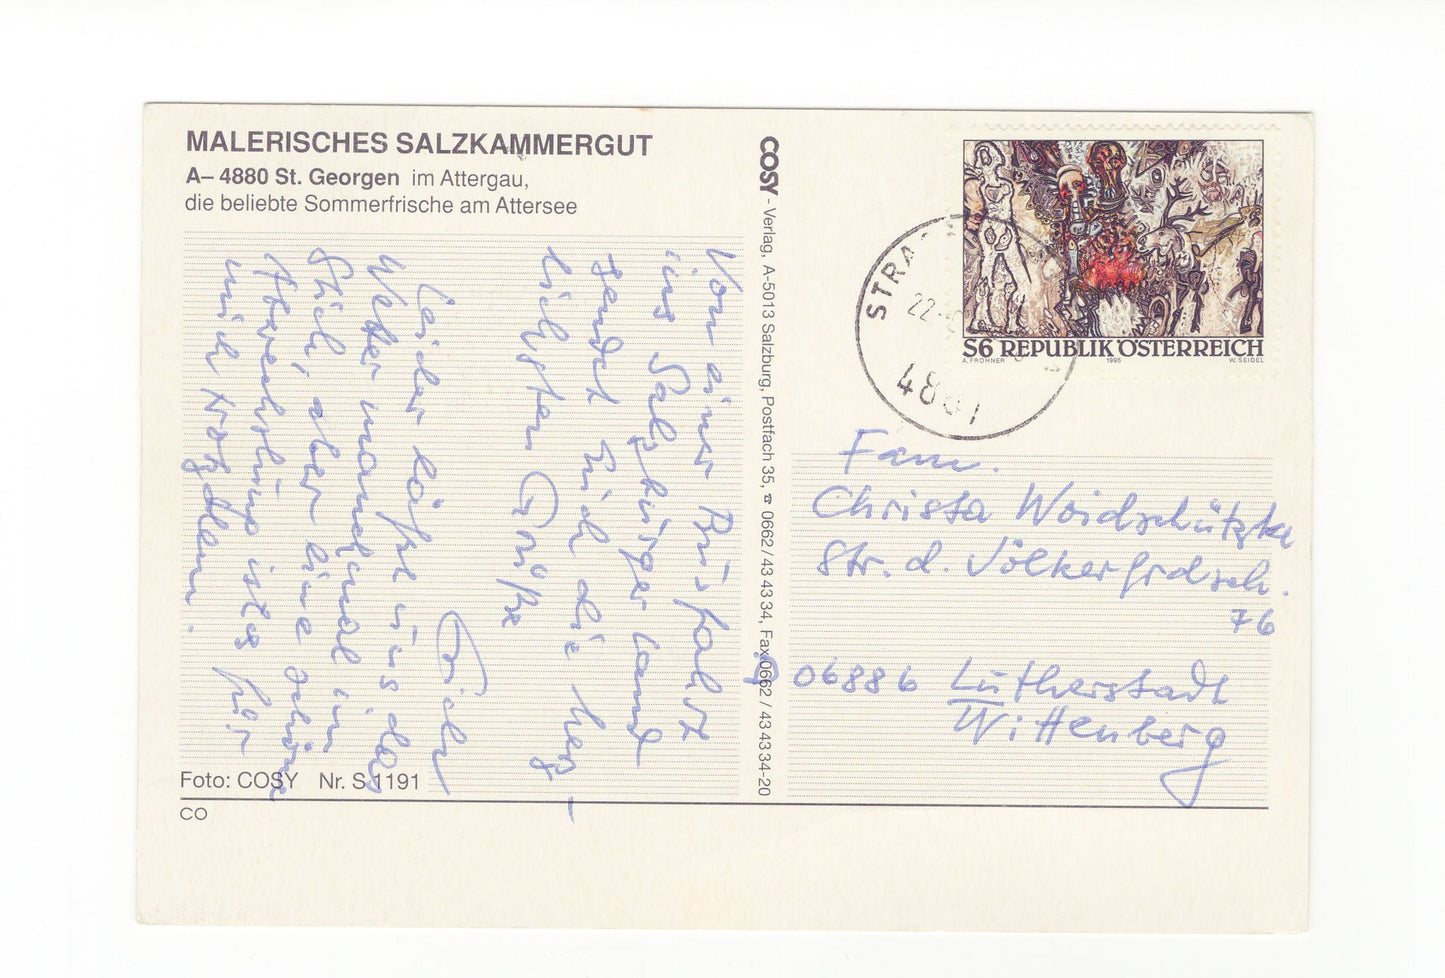 MALERISCHES SALZKAMMERGUT
A– 4880 St. Georgen im Attergau,
die beliebte Sommerfrische am Attersee
Von einer Busfahrt
ins Salzburger Land
sendet Euch die herz-
lichsten Grüße
Leider läßt uns das
Wetter manchmal im
Stich, aber eine schöne
Abwechslung ist es für
mich trotzdem.
Foto: COSY Nr. S 1191
CO
COSY - Verlag, A-5013 Salzburg, Postfach 35, ☎ 0662 / 43 43 34, Fax 0662 / 43 43 34-20
S6 REPUBLIK ÖSTERREICH
A. FROHNER 1995 W. SEIDEL
STRA
22.
48
Fam.
Christa Woidschützke
Str. d. Völkerfrdsch.
76
06886 Lutherstadt
Wittenberg